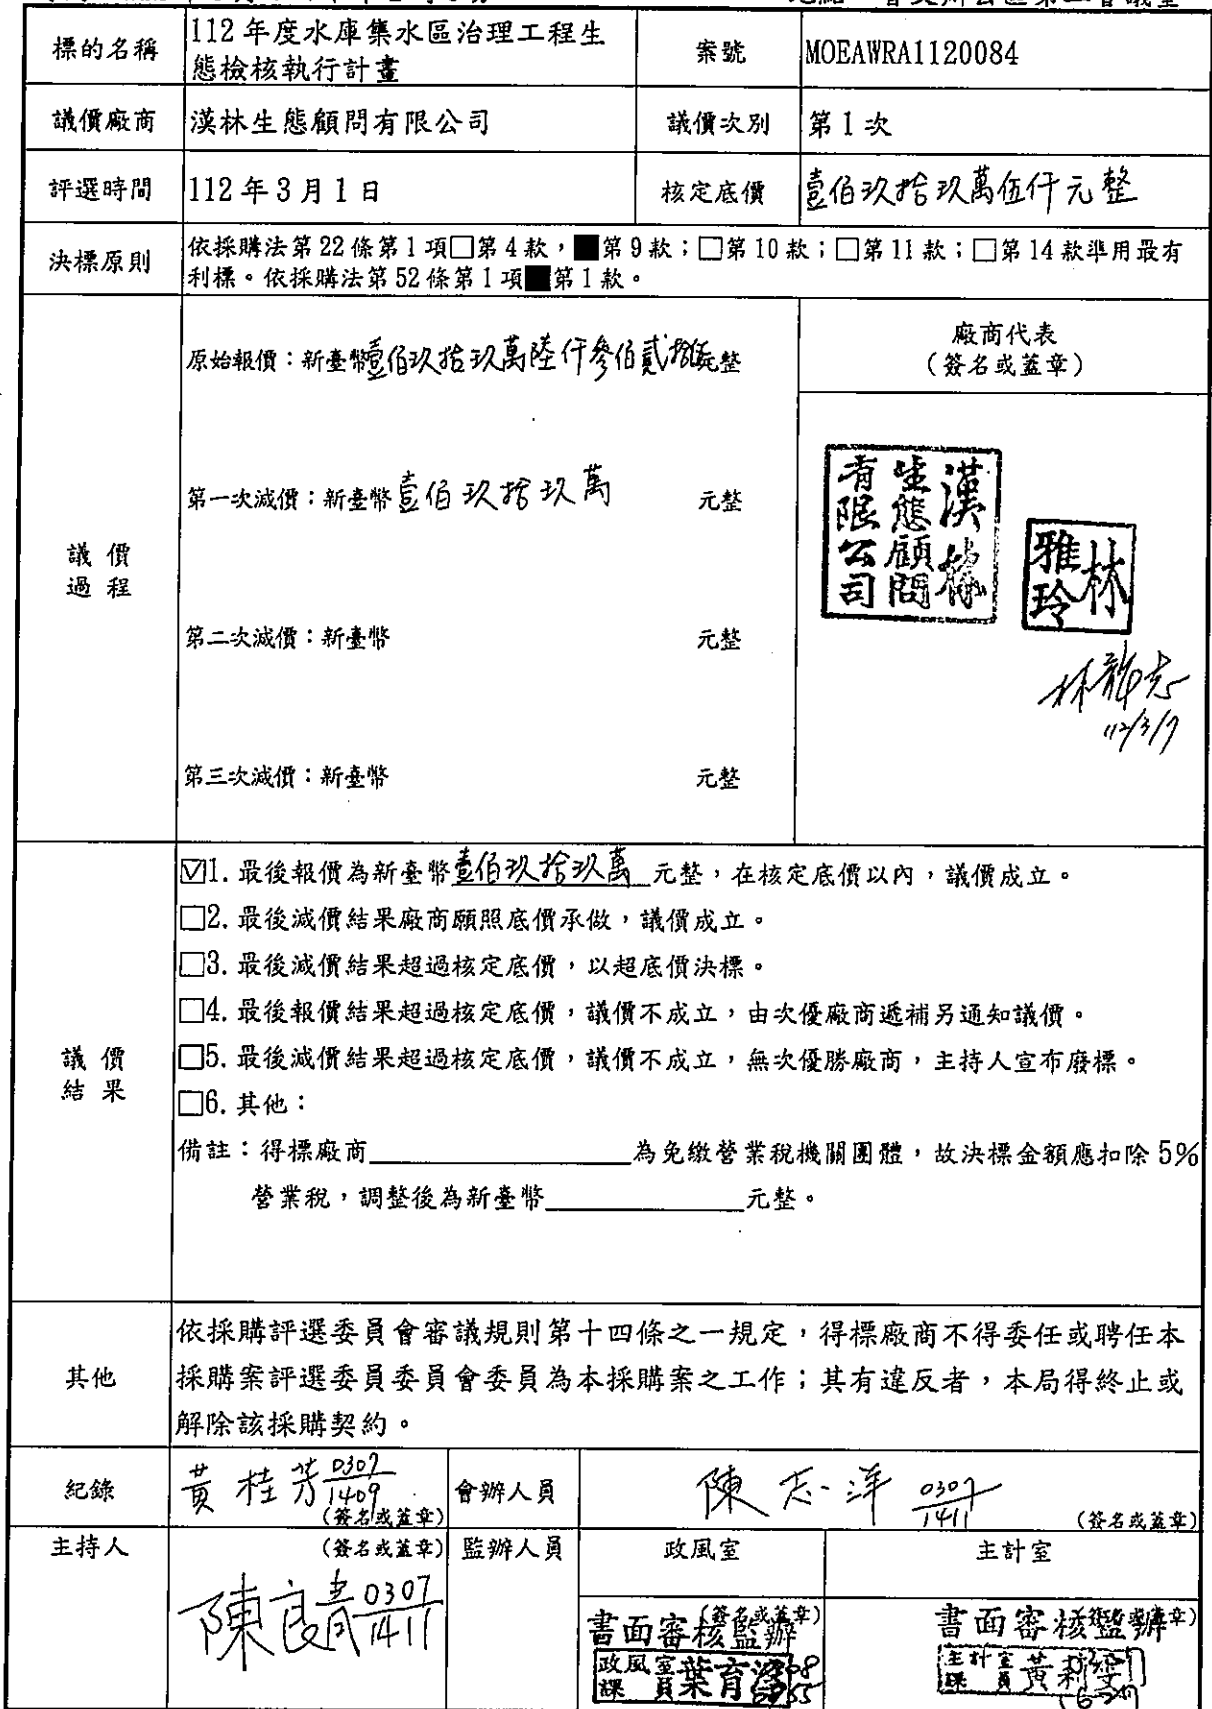 標的名稱
112 年度水庫集水區治理工程生
態檢核執行計畫
案號
MOEAWRA1120084
議價廠商
漢林生態顧問有限公司
議價次別
第 1 次
評選時間
112 年 3 月 1 日
核定底價
壹佰玖拾玖萬伍仟元整
決標原則
依採購法第 22 條第 1 項□第 4 款，■第 9 款；□第 10 款；□第 11 款；□第 14 款準用最有
利標。依採購法第 52 條第 1 項■第 1 款。
議價
過程
原始報價：新臺幣壹佰玖拾玖萬陸仟參佰貳拾伍元整
第一次減價：新臺幣壹佰玖拾玖萬 元整
第二次減價：新臺幣 元整
第三次減價：新臺幣 元整
廠商代表
（簽名或蓋章）
漢林
生態顧問
有限公司
林
雅玲
112/3/7
議價
結果
☑1. 最後報價為新臺幣壹佰玖拾玖萬 元整，在核定底價以內，議價成立。
□2. 最後減價結果廠商願照底價承做，議價成立。
□3. 最後減價結果超過核定底價，以超底價決標。
□4. 最後報價結果超過核定底價，議價不成立，由次優廠商遞補另通知議價。
□5. 最後減價結果超過核定底價，議價不成立，無次優勝廠商，主持人宣布廢標。
□6. 其他：
備註：得標廠商＿＿＿＿＿＿＿＿為免繳營業稅機關團體，故決標金額應扣除 5%
營業稅，調整後為新臺幣＿＿＿＿＿＿元整。
其他
依採購評選委員會審議規則第十四條之一規定，得標廠商不得委任或聘任本
採購案評選委員委員會委員為本採購案之工作；其有違反者，本局得終止或
解除該採購契約。
紀錄
黃桂芳 0307
1409
（簽名或蓋章）
會辦人員
陳志洋 0307
1411
（簽名或蓋章）
主持人
（簽名或蓋章）
陳良青 0307
1411
監辦人員
政風室
（簽名或蓋章）
書面審核監辦
政風室
課員
葉育
主計室
（簽名或蓋章）
書面審核監辦
主計室
課員
黃